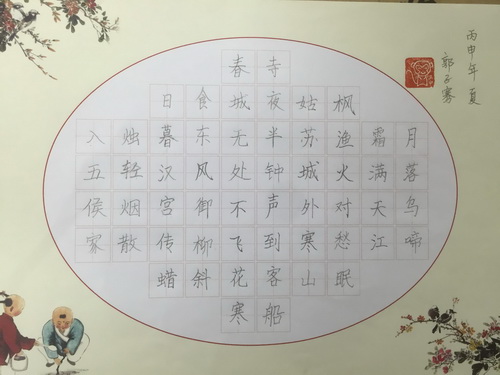 月落乌啼
霜满天江
枫渔火对愁眠
姑苏城外寒山
寺夜半钟声到客船
春城无处不飞花寒
食东风御柳斜
日暮汉宫传蜡
烛轻烟散
入五侯家
丙申年 夏
郭子骞